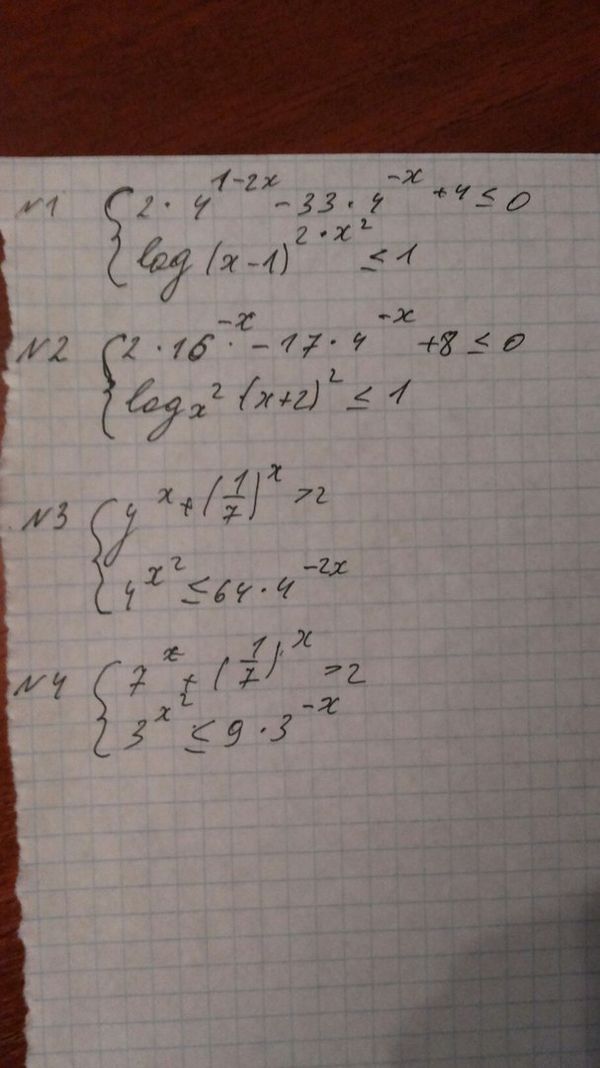 N1 { 2 · 4^{1-2x} - 33 · 4^{-x} + 4 ≤ 0
log (x-1)^{2 · x^2} ≤ 1
N2 { 2 · 16^{-x} - 17 · 4^{-x} + 8 ≤ 0
log_{x^2} (x+2)^2 ≤ 1
N3 { y^x + (1/7)^x > 2
4^{x^2} ≤ 64 · 4^{-2x}
N4 { 7^x + (1/7)^x > 2
3^{x^2} ≤ 9 · 3^{-x}